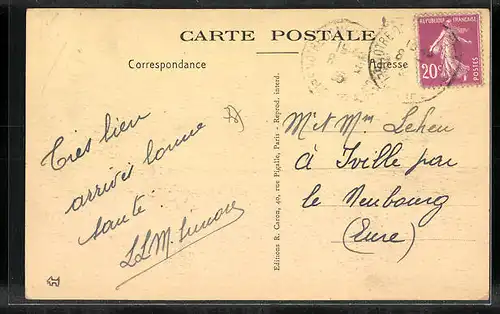 CARTE POSTALE
Correspondance
Adresse
RÉPUBLIQUE FRANÇAISE
20c
POSTES
Très bien
arrivés bonne
santé.
Editions R. Caron, 40, rue Pigalle, Paris - Reprod. interd.
M et Mme Leheu
à Iville par
le Neubourg
(Eure)